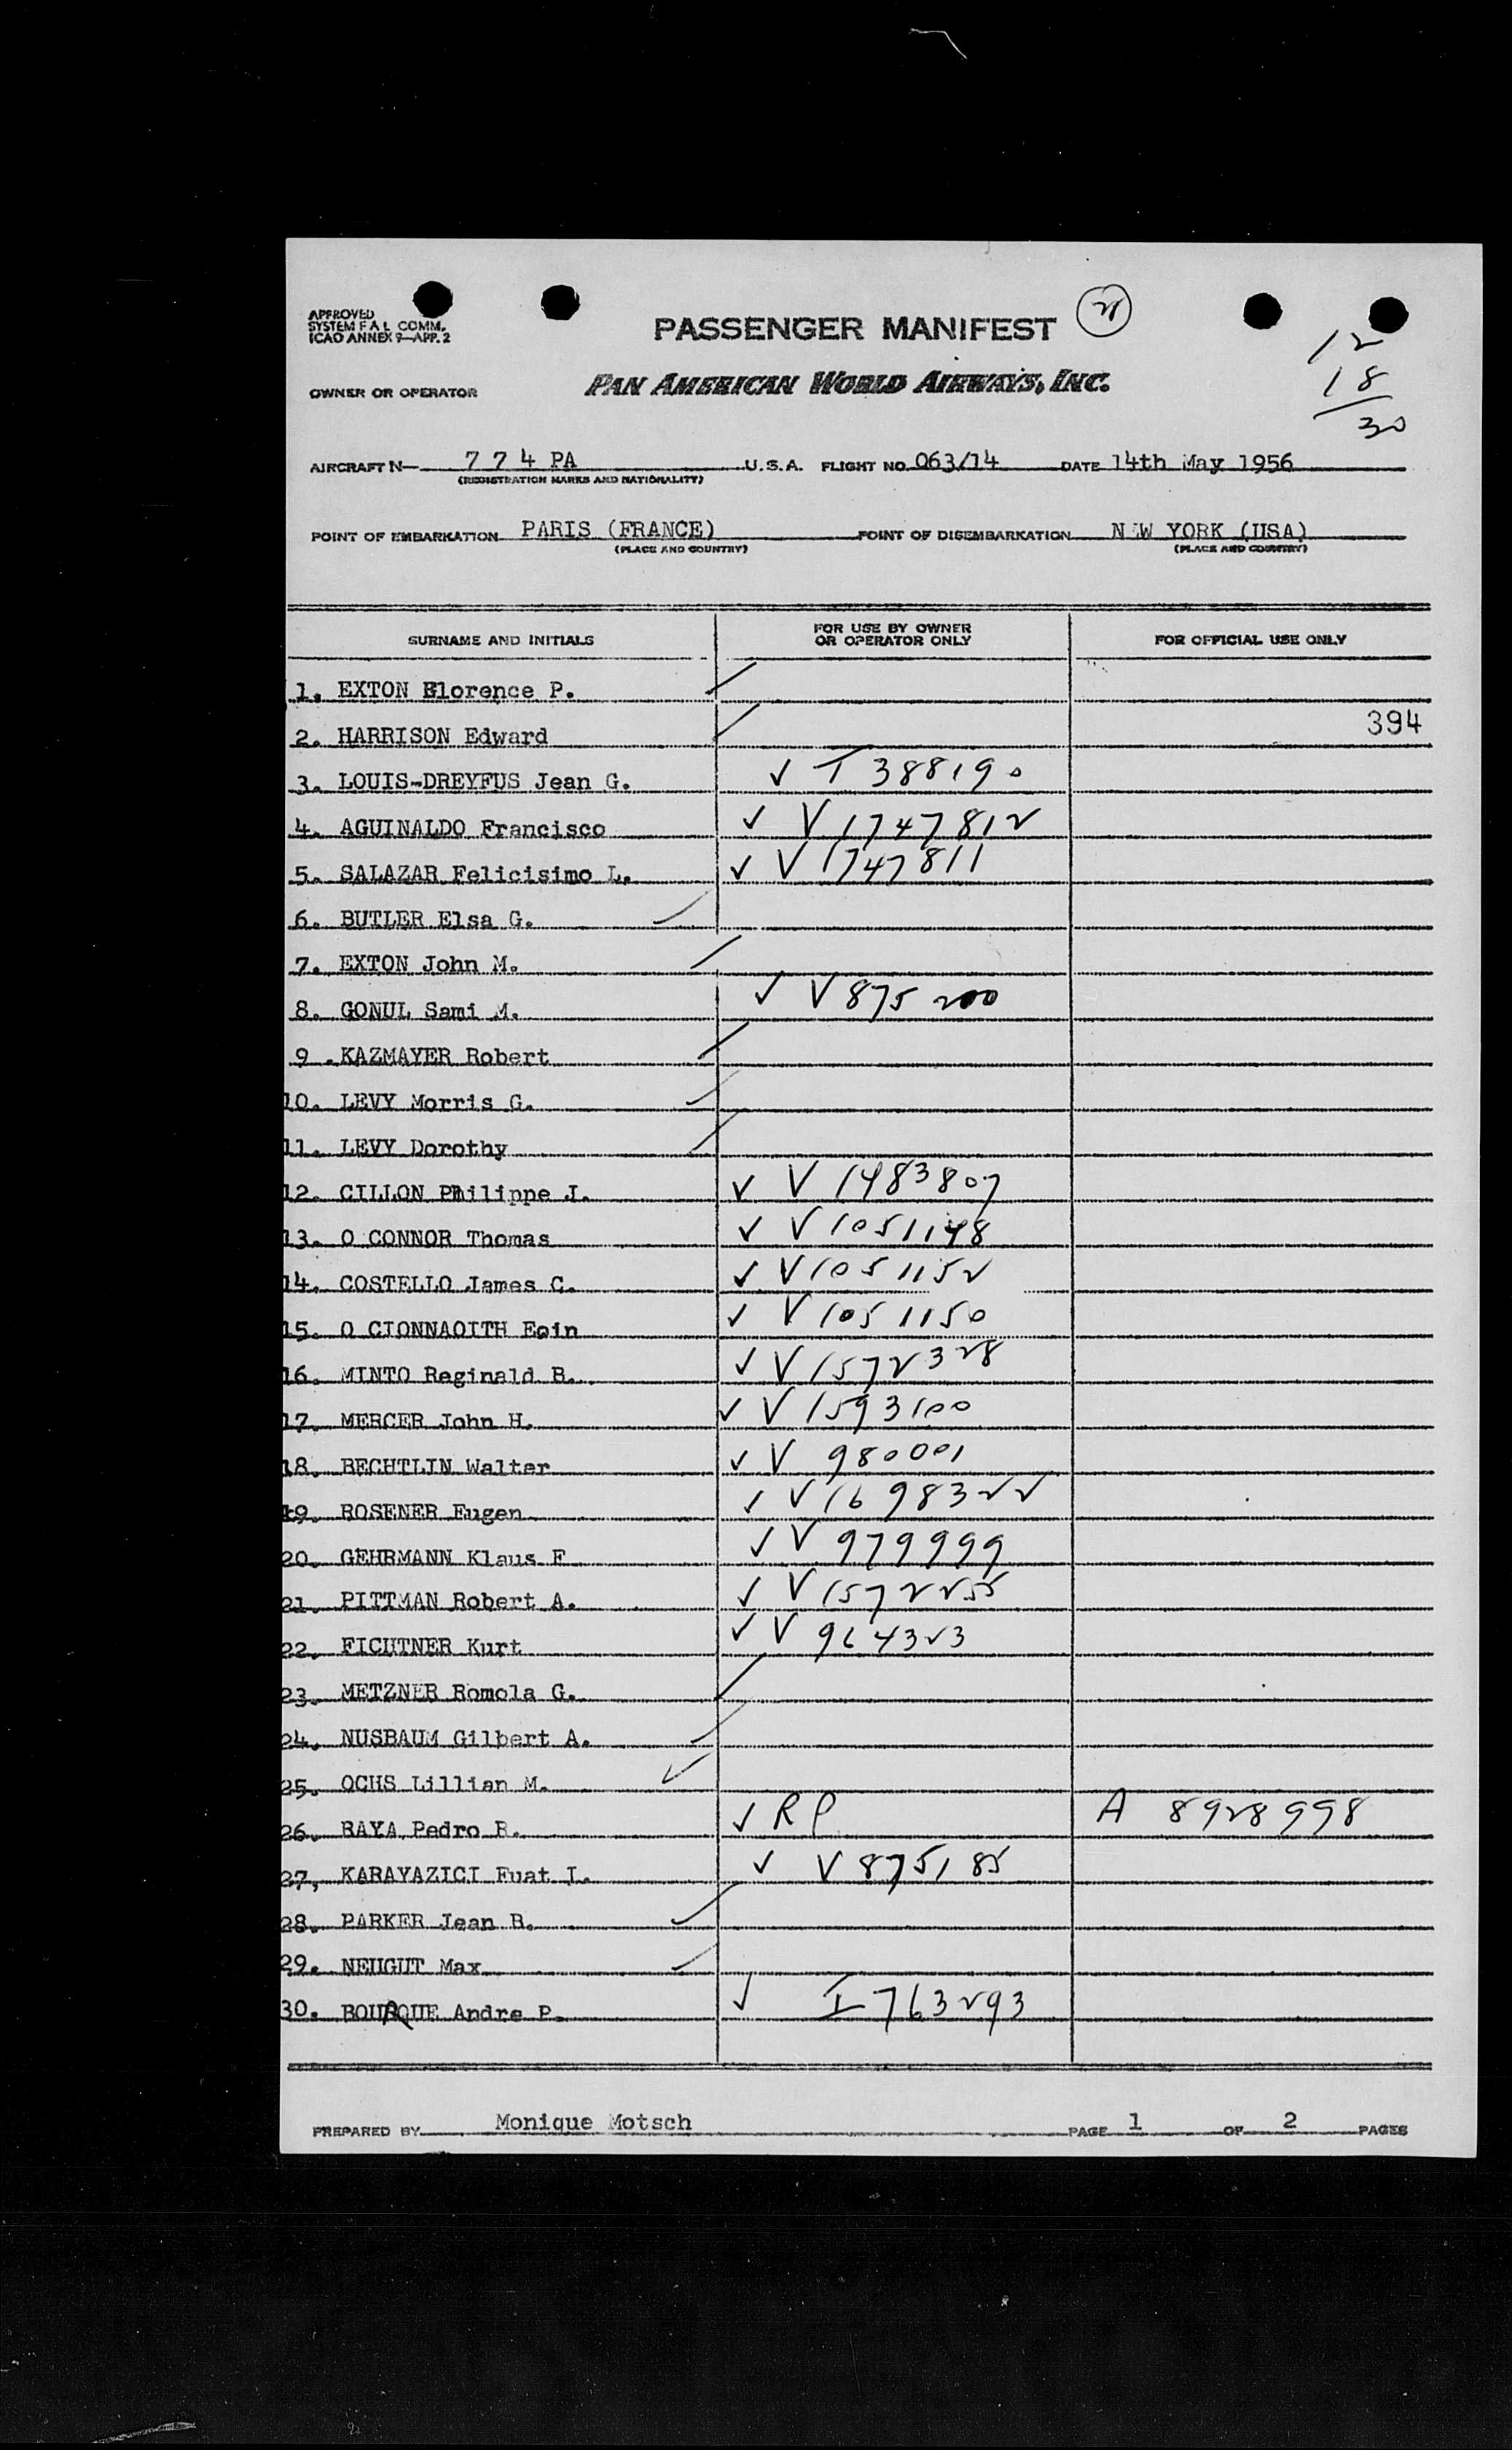 APPROVED
SYSTEM F A L COMM.
ICAO ANNEX 9—APP. 2
PASSENGER MANIFEST
12
18
30
OWNER OR OPERATOR PAN AMERICAN WORLD AIRWAYS, INC.
AIRCRAFT N— 7 7 4 PA U.S.A. FLIGHT NO. 063/14 DATE 14th May 1956
(REGISTRATION MARKS AND NATIONALITY)
POINT OF EMBARKATION PARIS (FRANCE) POINT OF DISEMBARKATION NEW YORK (USA)
(PLACE AND COUNTRY) (PLACE AND COUNTRY)
SURNAME AND INITIALS FOR USE BY OWNER OR OPERATOR ONLY FOR OFFICIAL USE ONLY
1. EXTON Florence P. ✓
2. HARRISON Edward ✓ 394
3. LOUIS-DREYFUS Jean G. ✓ T 388190
4. AGUINALDO Francisco ✓ V 1747812
5. SALAZAR Felicisimo L. ✓ V 1747811
6. BUTLER Elsa G. ✓
7. EXTON John M. ✓
8. GONUL Sami M. ✓ V 875200
9. KAZMAYER Robert ✓
10. LEVY Morris G. ✓
11. LEVY Dorothy ✓
12. CILLON Philippe J. ✓ V 1483807
13. O CONNOR Thomas ✓ V 1051148
14. COSTELLO James C. ✓ V 1051152
15. O CIONNAOITH Eoin ✓ V 1051150
16. MINTO Reginald B. ✓ V 1572328
17. MERCER John H. ✓ V 1593100
18. BECHTLIN Walter ✓ V 980001
19. ROSENER Eugen ✓ V 1698322
20. GEHRMANN Klaus F ✓ V 979999
21. PITTMAN Robert A. ✓ V 1572255
22. FICHTNER Kurt ✓ V 964323
23. METZNER Romola G. ✓
24. NUSBAUM Gilbert A. ✓
25. OCHS Lillian M. ✓
26. RAYA Pedro R. ✓ RP A 8928998
27, KARAYAZICI Fuat I. ✓ V 875185
28. PARKER Jean B. ✓
29. NEUGUT Max ✓
30. BOURQUE Andre P. ✓ I 763293
PREPARED BY Monique Motsch PAGE 1 OF 2 PAGES